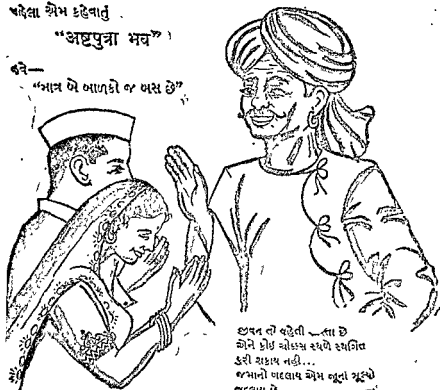 પહેલા એમ કહેવાતું
“અષ્ટપુત્રા ભવ”
હવે—
“માત્ર બે બાળકો જ બસ છે”
જીવન તો વહેતી છે
એને કોઈ ચોક્કસ સ્થળે સ્થગિત
કરી શકાય નહી...
જમાનો બદલાય એમ જૂનાં મૂલ્યો
બદલાય છે